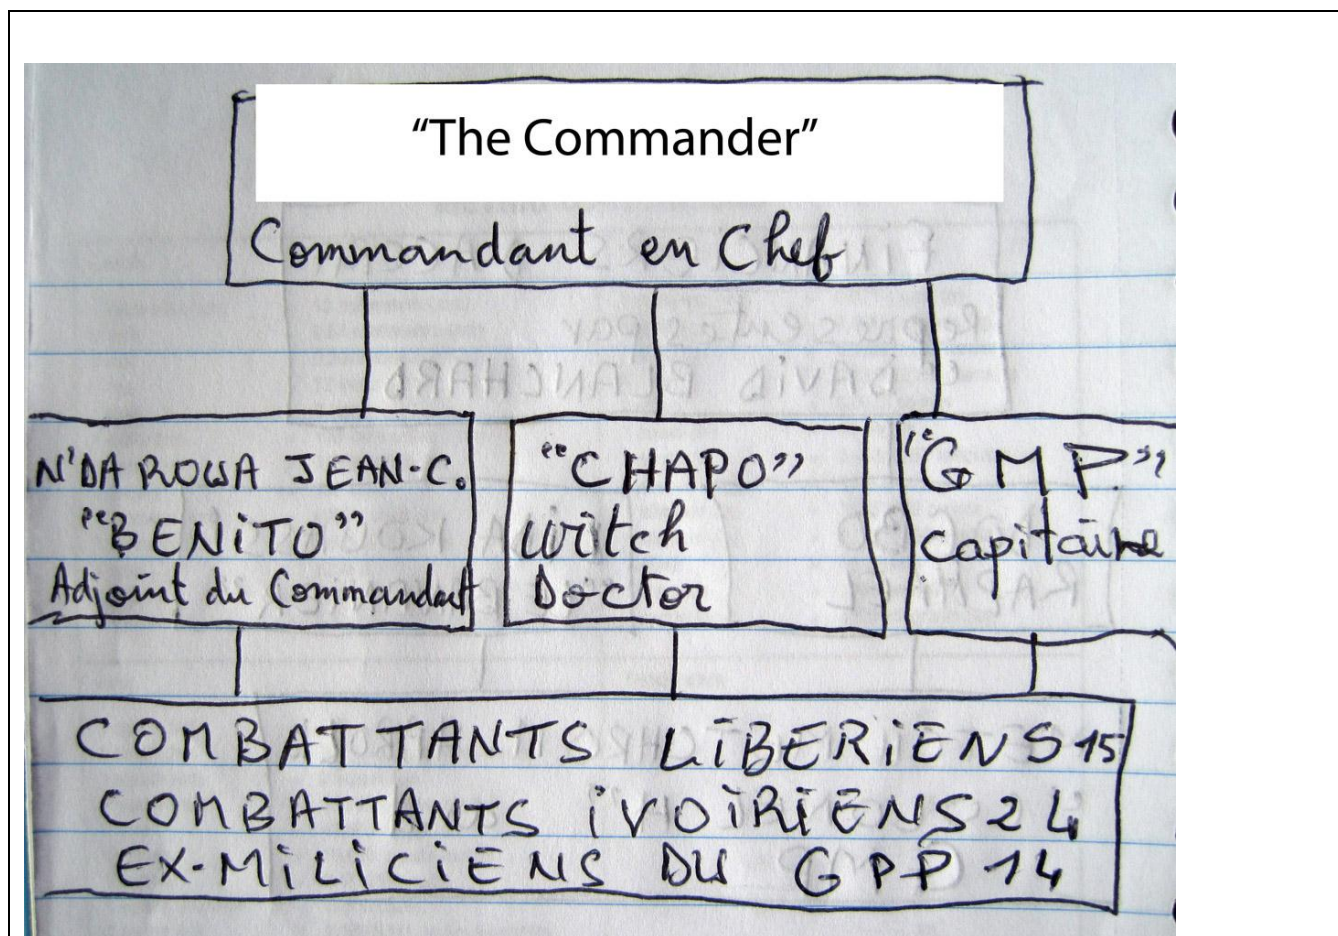 “The Commander”
Commandant en Chef
N'DA ROWA JEAN-C.
“BENiTO”
Adjoint du Commandant
“CHAPO”
Witch
Doctor
“GMP”
Capitaine
COMBATTANTS LiBERiENS 15
COMBATTANTS iVOiRiENS 24
EX-MiLiCiENS DU GPP 14